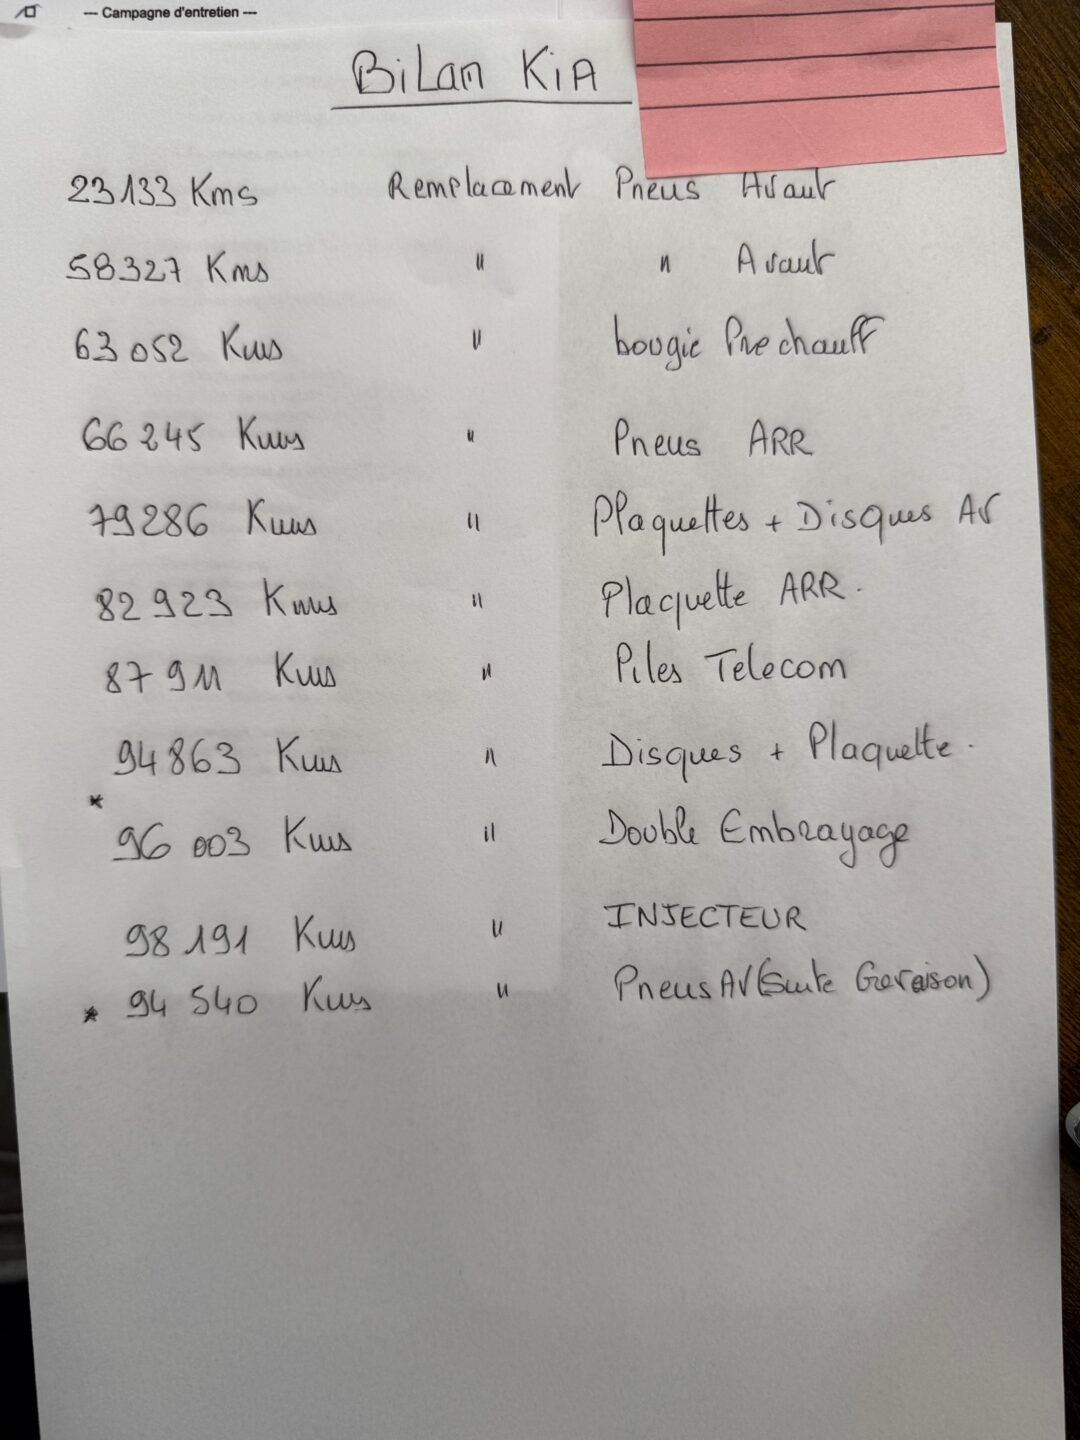 --- Campagne d'entretien ---
Bilan KiA
23133 Kms Remplacement Pneus Avant
58327 Kms " " Avant
63 052 Kms " bougie Prechauff
66 245 Kms " Pneus ARR
79286 Kms " Plaquettes + Disques AV
82 923 Kms " Plaquette ARR.
87 911 Kms " Piles Telecom
94 863 Kms " Disques + Plaquette.
* 96 003 Kms " Double Embrayage
98 191 Kms " INJECTEUR
* 94 540 Kms " Pneus AV (Suite